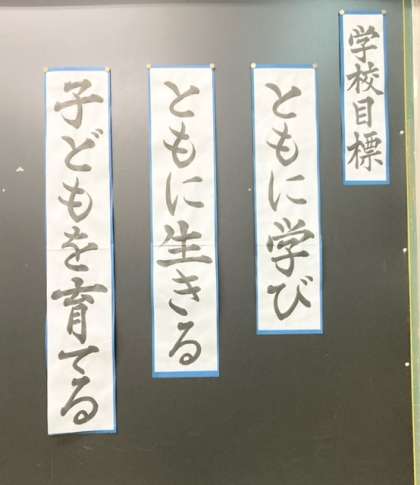 学校目標
ともに学び
ともに生きる
子どもを育てる